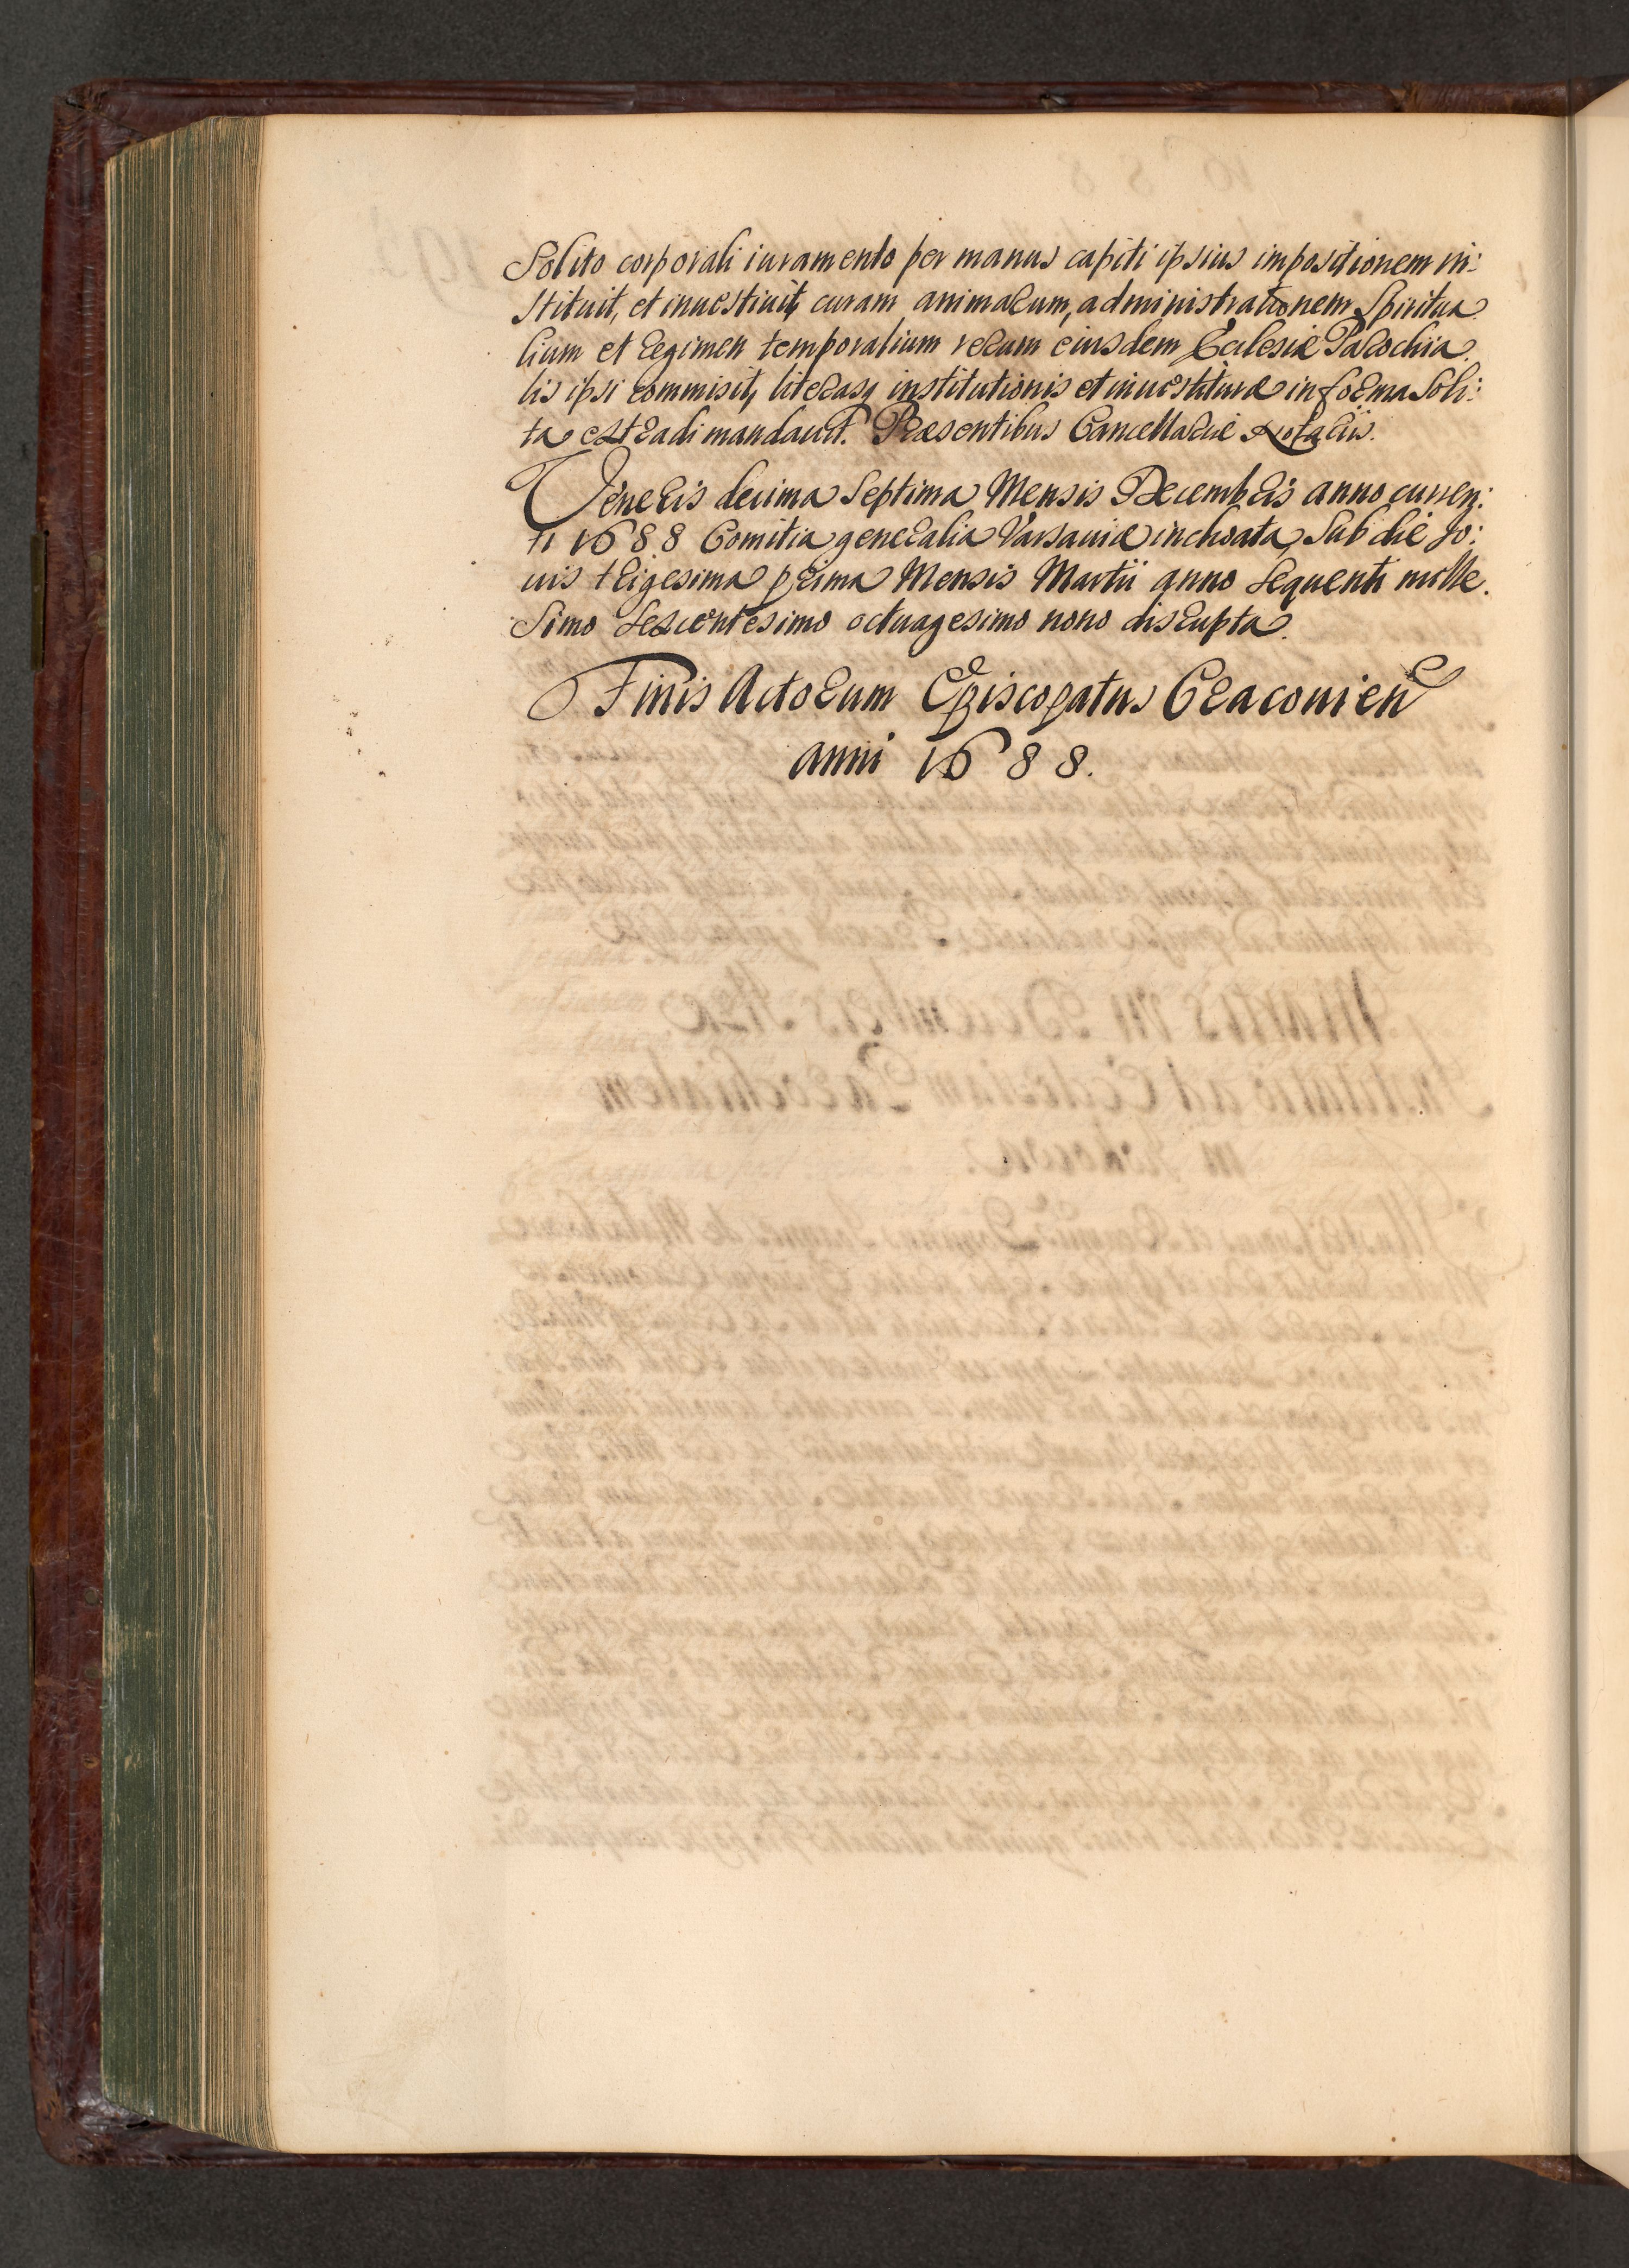 Solito corporali iuramento per manus capiti ipsius impositionem in:
stituit, et inuestiuit, curam animarum, administrationem Spiritua
lium et regimen temporalium rerum eiusdem Ecclesiæ Parochia.
lis ipsi commisit, literasq institutionis et inuestituræ in forma Soli:
ta extradi mandauit. Præsentibus Cancellariæ Notariis.
Veneris decima Septima Mensis Decembris anno curren:
ti 1688 Comitia generalia Varsauiæ inchoata, Sub die Jo:
uis trigesima prima Mensis Martii anno Sequenti mille.
Simo Sexcentesimo octuagesimo nono disrupta.
Finis Actorum Episcopatus Cracouien
anni 1688.